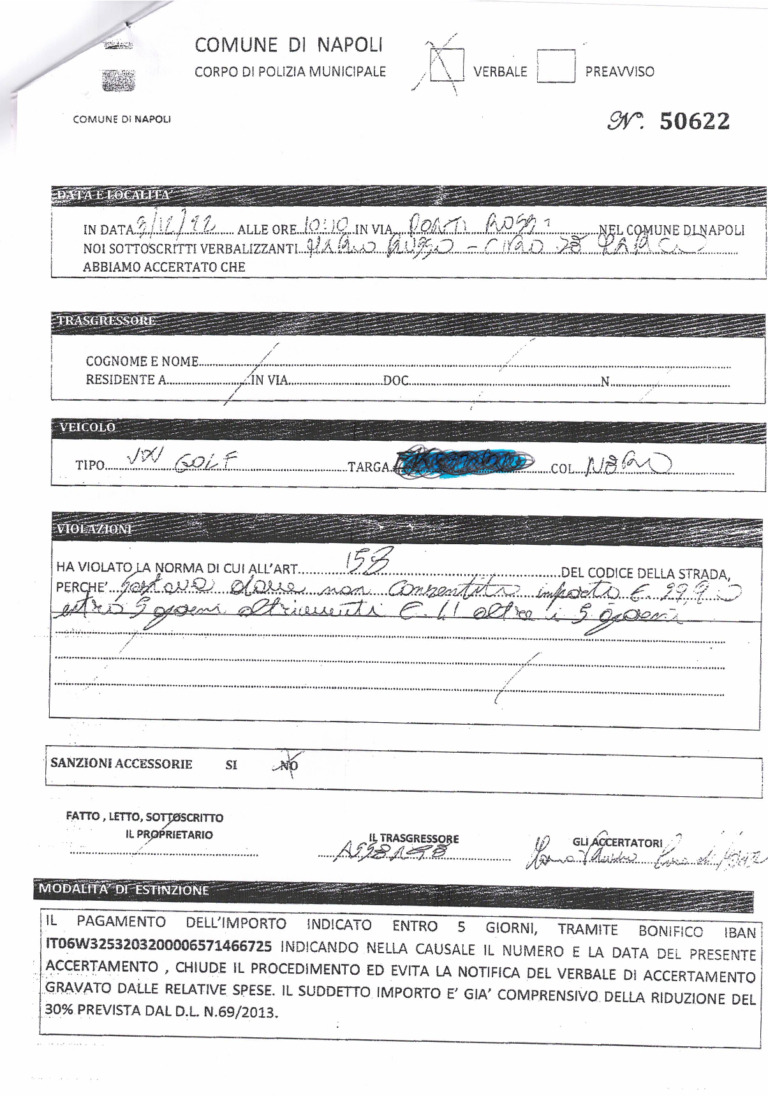 COMUNE DI NAPOLI
CORPO DI POLIZIA MUNICIPALE
VERBALE
PREAVVISO
COMUNE DI NAPOLI
N°. 50622
DATA E LOCALITA'
IN DATA 9/12/22 ALLE ORE 10:10 IN VIA PONTI ROSSI NEL COMUNE DI NAPOLI
NOI SOTTOSCRITTI VERBALIZZANTI MARIO RUSSO - CIRO
ABBIAMO ACCERTATO CHE
TRASGRESSORE
COGNOME E NOME
RESIDENTE A IN VIA DOC N
VEICOLO
TIPO VW GOLF TARGA COL NERO
VIOLAZIONI
HA VIOLATO LA NORMA DI CUI ALL'ART. 158 DEL CODICE DELLA STRADA,
PERCHE' sostava dove non consentito importo E. 29,90
entro 5 giorni altrimenti E. 41 oltre i 5 giorni
SANZIONI ACCESSORIE SI NO
FATTO , LETTO, SOTTOSCRITTO
IL PROPRIETARIO
IL TRASGRESSORE
GLI ACCERTATORI
ASSENTE
MODALITA' DI ESTINZIONE
IL PAGAMENTO DELL'IMPORTO INDICATO ENTRO 5 GIORNI, TRAMITE BONIFICO IBAN
IT06W3253203200006571466725 INDICANDO NELLA CAUSALE IL NUMERO E LA DATA DEL PRESENTE
ACCERTAMENTO , CHIUDE IL PROCEDIMENTO ED EVITA LA NOTIFICA DEL VERBALE DI ACCERTAMENTO
GRAVATO DALLE RELATIVE SPESE. IL SUDDETTO IMPORTO E' GIA' COMPRENSIVO DELLA RIDUZIONE DEL
30% PREVISTA DAL D.L. N.69/2013.